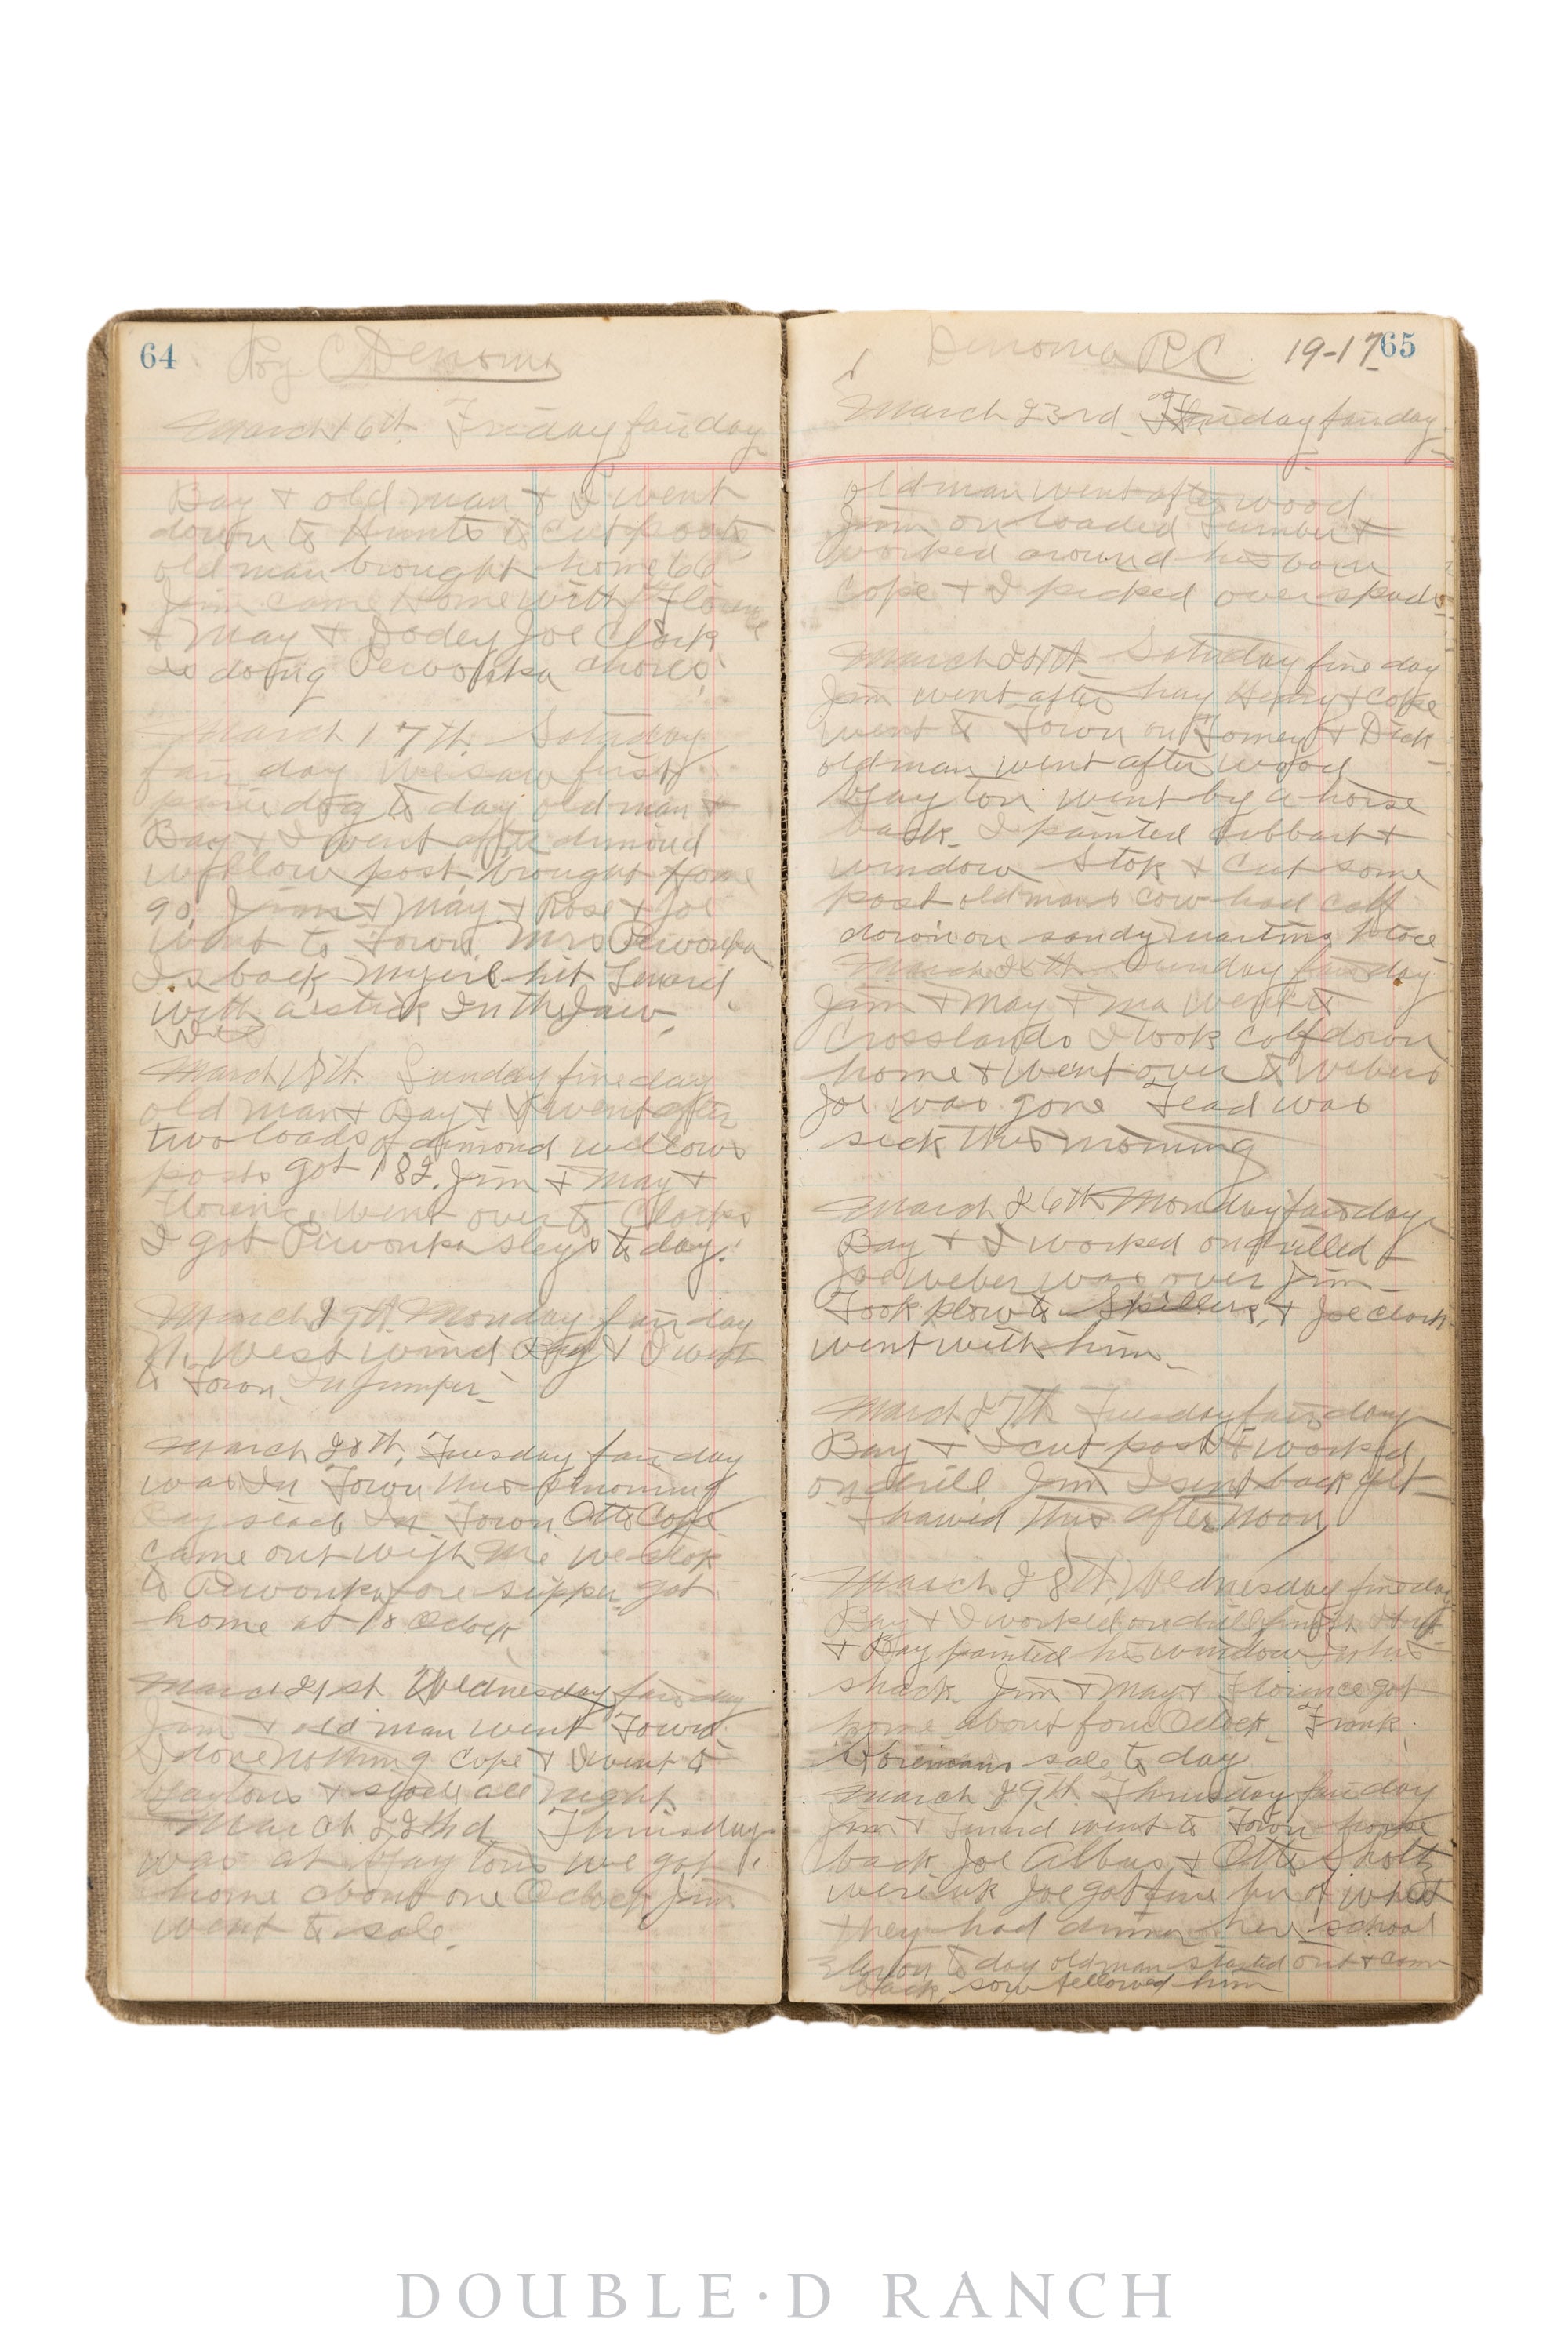 64
Roy C Denoma
March 16th. Friday fair day
Bay & old man & I went
down to Hunts to cut posts
old man brought home 66
Jim came Home with Florence
& May & Dodey Joe Clark
is doing Pewonka chores.
March 17th. Saturday
fair day we saw first
prarie dog to day old man &
Bay & I went after dimond
willow post, brought Home
90. Jim & May & Rose & Joe
went to Town. Mrs Pewonka
Is back My girl hit
with a stick In the Jaw.
March 18th. Sunday fine day
old man & Bay & I went after
two loads of dimond willows
posts got 182. Jim & May &
Florence went over to Clarks
I got Pewonka sleys to day.
March 19th. Monday fair day
N. West wind Bay & I went
to Town. In Jumper.
March 20th, Tuesday fair day
was In Town this morning
Bay staid In Town. Otto Cope
came out with Me we stop
to Pewonka fore supper got
home at 10 Oclock
March 21st Wednesday fair day
Jim & old man went Town.
I done nothing Cope & I went to
& staid all night
March 22nd Thursday
was at we got
home about one Oclock Jim
went to sale.
Denoma R C 19-17 65
March 23rd. Friday fair day
old man went after wood
Jim on loaded lumber &
worked around his barn
Cope & I picked over spuds
March 24th Saturday fine day
Jim went after hay Henry & Cope
went to Town on Romey & Dick
old man went after wood
went by a horse
back. I painted cubbart &
window Stok & Cut some
post old mans cow had calf
down on sandy place
March 25th Sunday fair day
Jim & May & ma went to
Crosslands I took calf down
home & went over to Webers
Joe was gone Tead was
sick this morning
March 26th Monday fair day
Bay & I worked on drilled &
Joe Weber was over Jim
Took plow to Spillers, & Joe Clark
went with him.
March 27th Tuesday fair day
Bay & I cut post & worked
on drill Jim Isint back yet
thawed this after noon
March 28th, Wednesday fine day
Bay & I worked on drill
& Bay painted his window In his
shack. Jim & May & Florence got
home about four Oclock. Frank
sale to day
March 29th. Thursday fair day
Jim & went to Town horse
back. Joe Albus & Otto Sholtz
were Joe got fine of wheat
they had dinner here school
to day old man started out & come
back, sow follewed him
DOUBLE·D RANCH